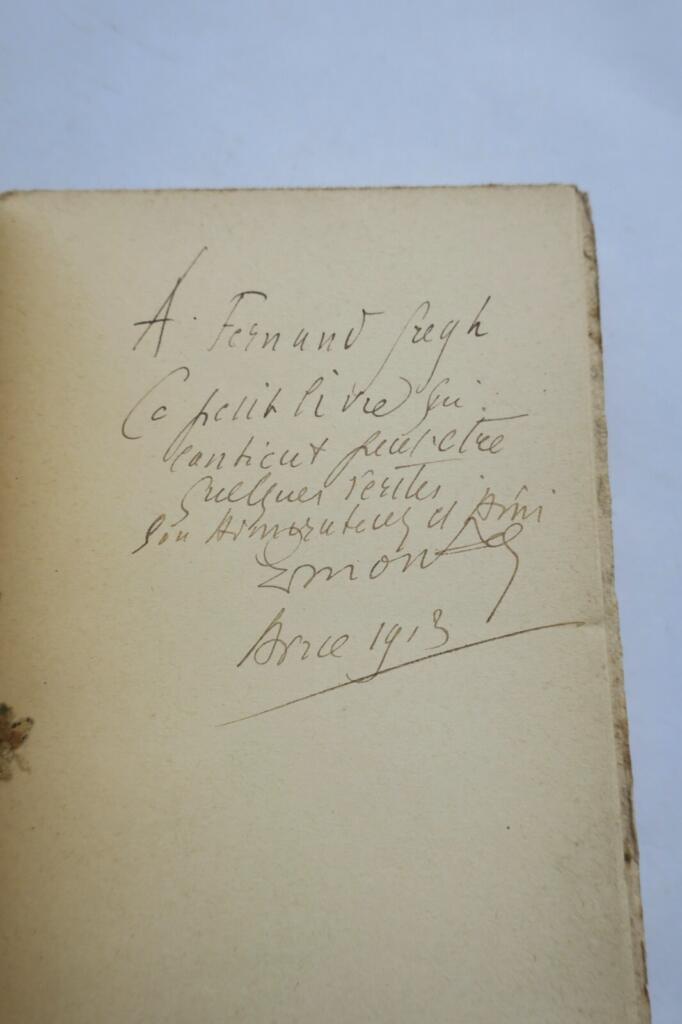 A. Fernand Gregh
Ce petit livre qui
contient peut être
quelques verités
Son Admirateur et Ami
1913